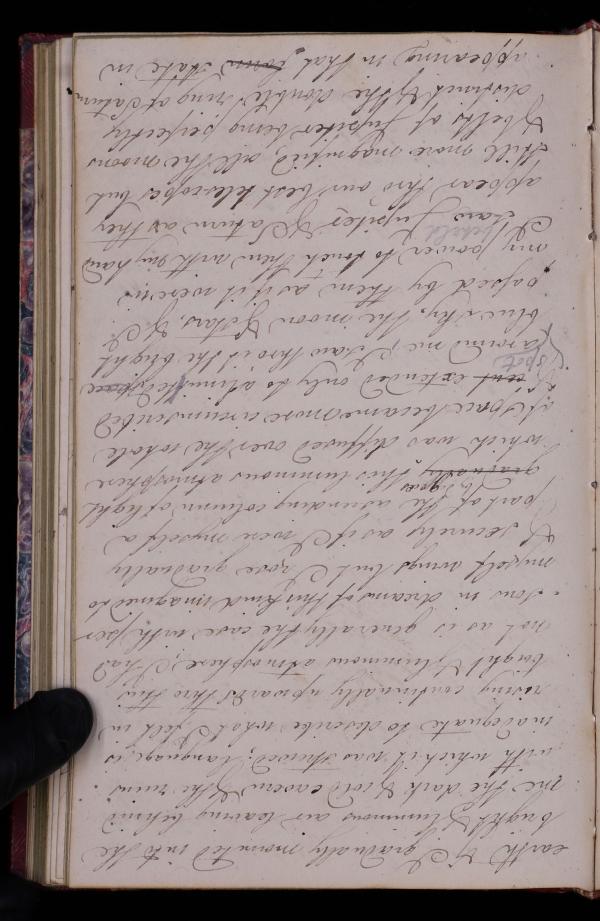 earth & I gradually mounted into the
bright & luminous air leaving behind
me the dark & cold cavern & the ruins
with which it was strewed; language is
inadequate to describe what I felt in
rising continually upwards thro this
bright & luminous atmosphere, I had
not as is generally the case with per
sons in dreams of this kind imagined to
myself wings but I rose gradually
& securely as if I were myself a
part of the ascending column of light
By degrees
gradually this luminous atmosphere
which was diffused over the whole
of space became more circumscribed
& and extended only to a limited space
spot
around me, I saw thro it the bright
blue sky, the moon & stars, & I
passed by them as if it were in
my power to touch them with my hand
I saw beheld Jupiter & Saturn as they
appear thro our best telescopes but
still more magnified, all the moons
& belts of Jupiter being perfectly
distinct & the double ring of Saturn
appearing in that form state in